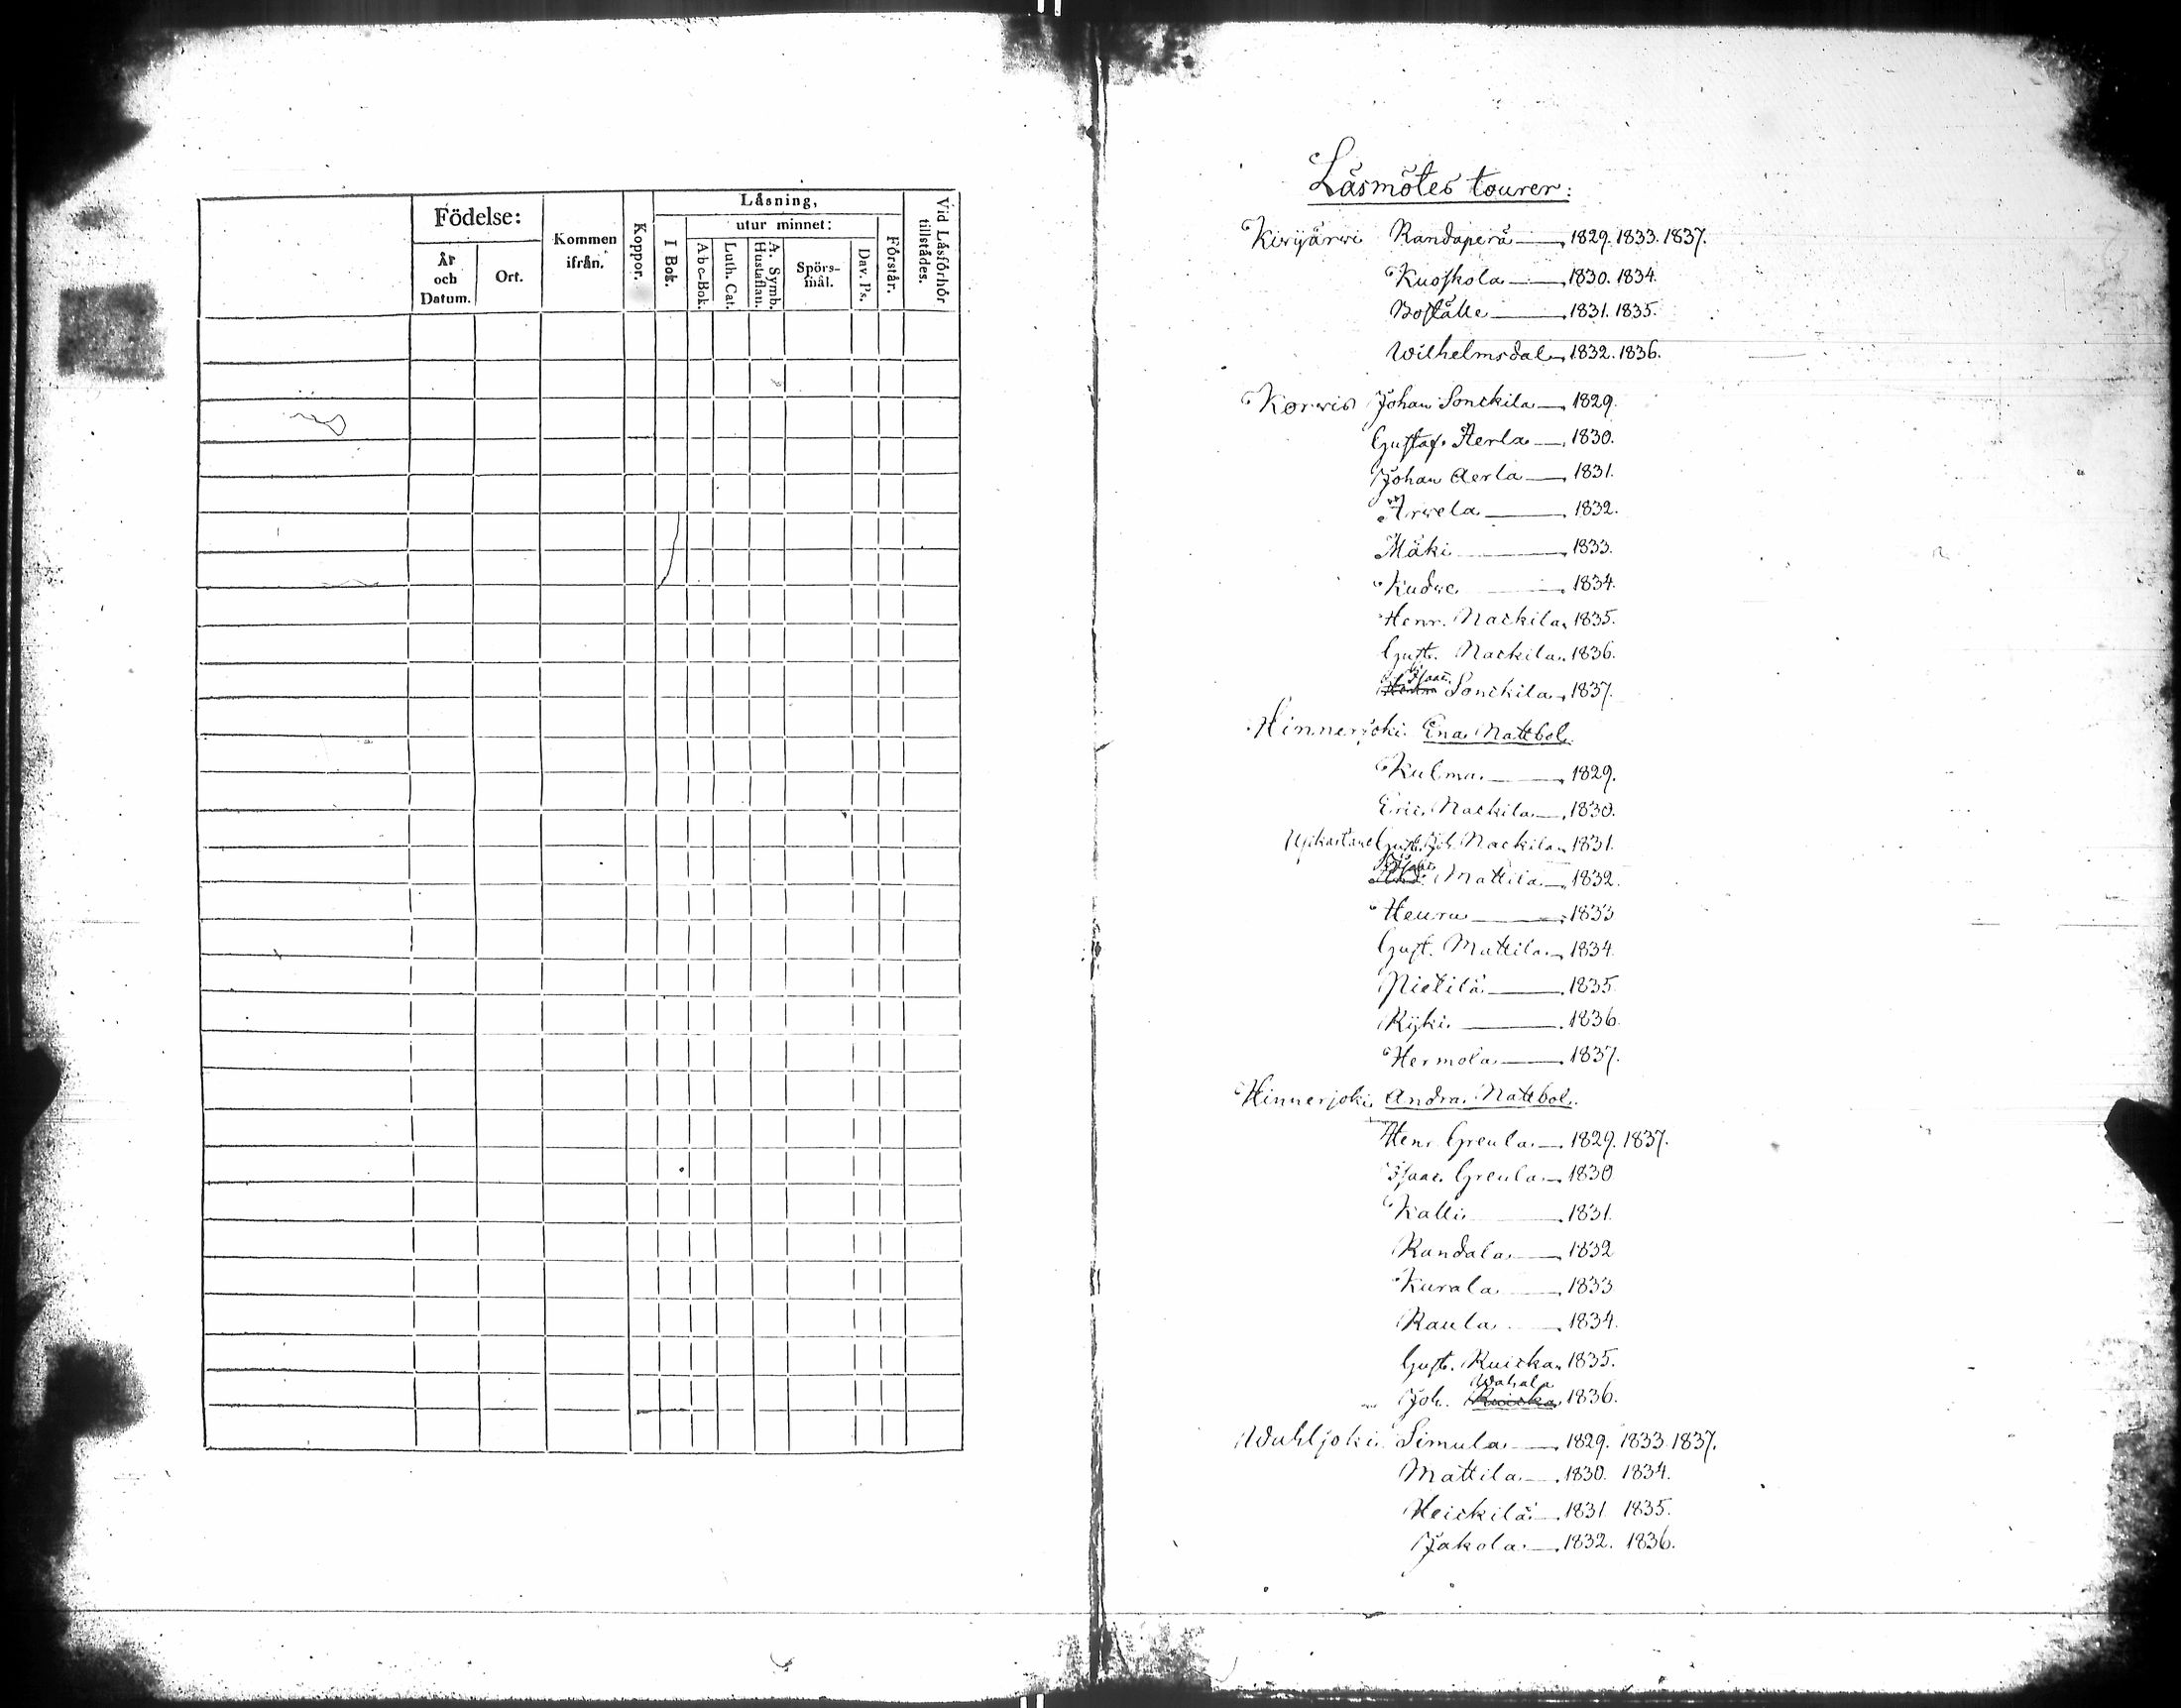 Födelse:
År och Datum.
Ort.
Kommen ifrån.
Koppor.
Läsning,
I Bok.
utur minnet:
A b c-Bok.
Luth. Cat.
A. Symb. Hustaflan.
Spörs-mål.
Dav. Ps.
Förstår.
Vid Läsförhör tillstädes.
Läsmötes tourer:
Kirijärwi Randaperä 1829. 1833. 1837.
Kuoskola 1830. 1834.
Boställe 1831. 1835.
Wilhelmsdal 1832. 1836.
Korwis Johan Sonckila 1829.
Gustaf Aerla 1830.
Johan Aerla 1831.
Arwela 1832.
Mäki 1833.
Kudwe 1834.
Henr. Nackila 1835.
Gust. Nackila 1836.
Isaac Sonckila 1837.
Hinnerjoki Ena Mattbol.
Kulma 1829.
Eric Nackila 1830.
Gust. Joh. Nackila 1831.
Mattila 1832.
Heuru 1833
Gust. Mattila 1834.
Pietilä 1835
Ryki 1836.
Hermola 1837.
Hinnerjoki Andra Mattbol.
Henr. Greula 1829. 1837.
Isaac Greula 1830
Kalli 1831.
Randala 1832
Kurala 1833
Raula 1834.
Gust. Ruicka 1835.
Joh. Ruicka Wahala 1836.
Wuhljoki Simula 1829. 1833 1837.
Mattila 1830. 1834.
Heickilä 1831 1835.
Jakola 1832. 1836.